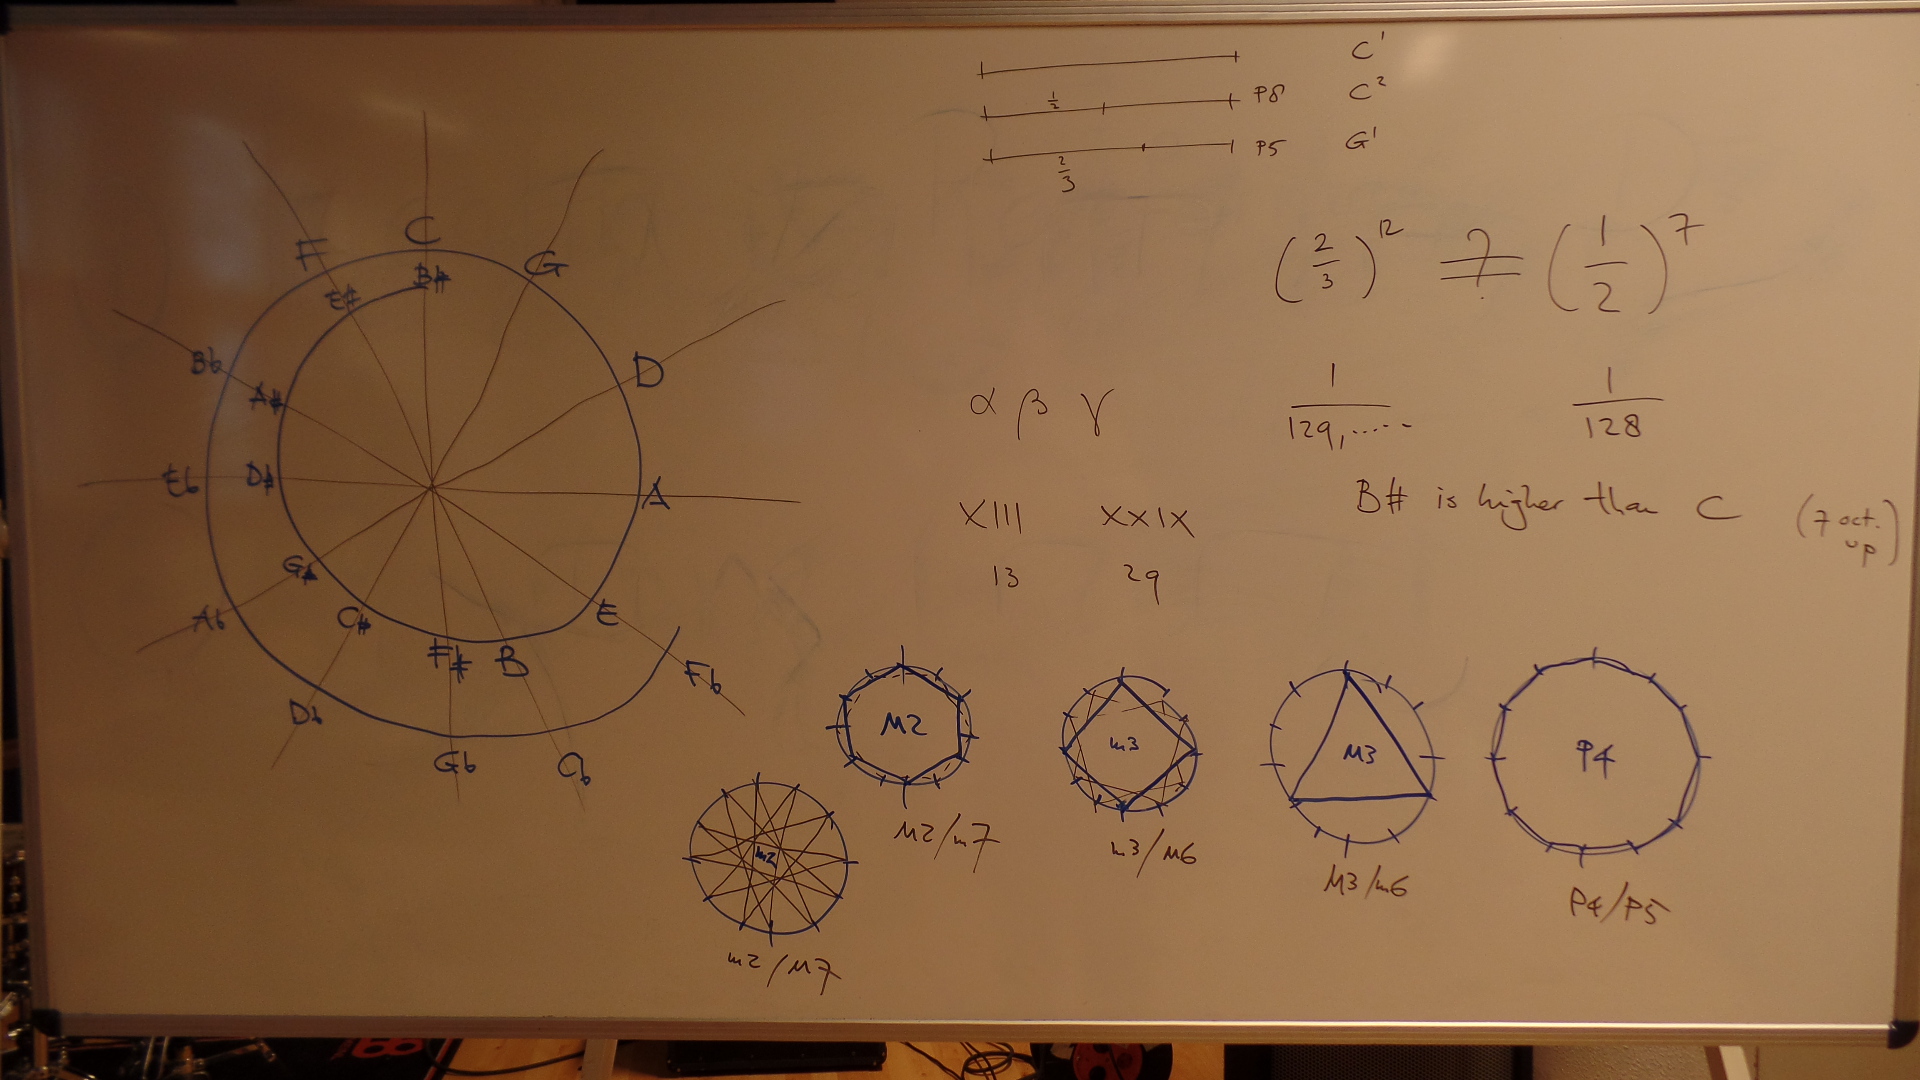 C
F
G
B#
E#
D
Bb
A#
Eb
D#
A
G#
Ab
C#
E
F#
B
Fb
Db
Gb
Cb
C¹
1/2 P8 C²
2/3 P5 G¹
(2/3)¹² =?= (1/2)⁷
α β γ
1/129,..... 1/128
XIII XXIX
13 29
B# is higher than C (7 oct. up)
M2
m3
M3
P4
m2
M2/m7
m3/M6
M3/m6
P4/P5
m2/M7